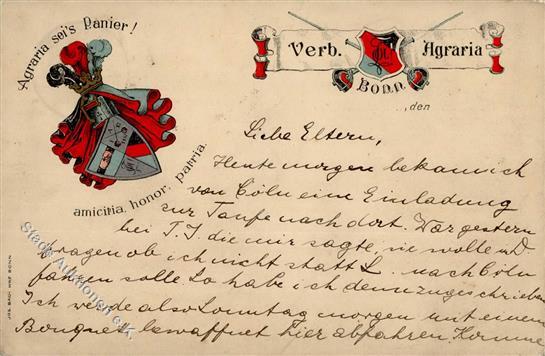 Agraria sei's Panier!
Verb. Agraria
Bonn
, den
amicitia, honor, patria.
Liebe Eltern,
Heute morgen bekam ich
von Cöln eine Einladung
zur Taufe nach dort. War gestern
bei T. J. die mir sagte, sie wolle u D.
fragen ob ich nicht statt L. nach Cöln
fahren solle. So habe ich denn zugeschrieben
Ich werde also Sonntag morgen mit einem
Bouquet bewaffnet hier abfahren. Komme
JOS. BACH WWE BONN